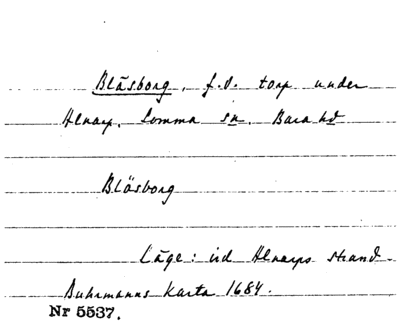 Blåsborg, f.d. torp under
Alnarp, Lomma sn, Bara hd
Blåsborg
Läge: vid Alnarps strand.
Buhrmanns karta 1684.
Nr 5537.